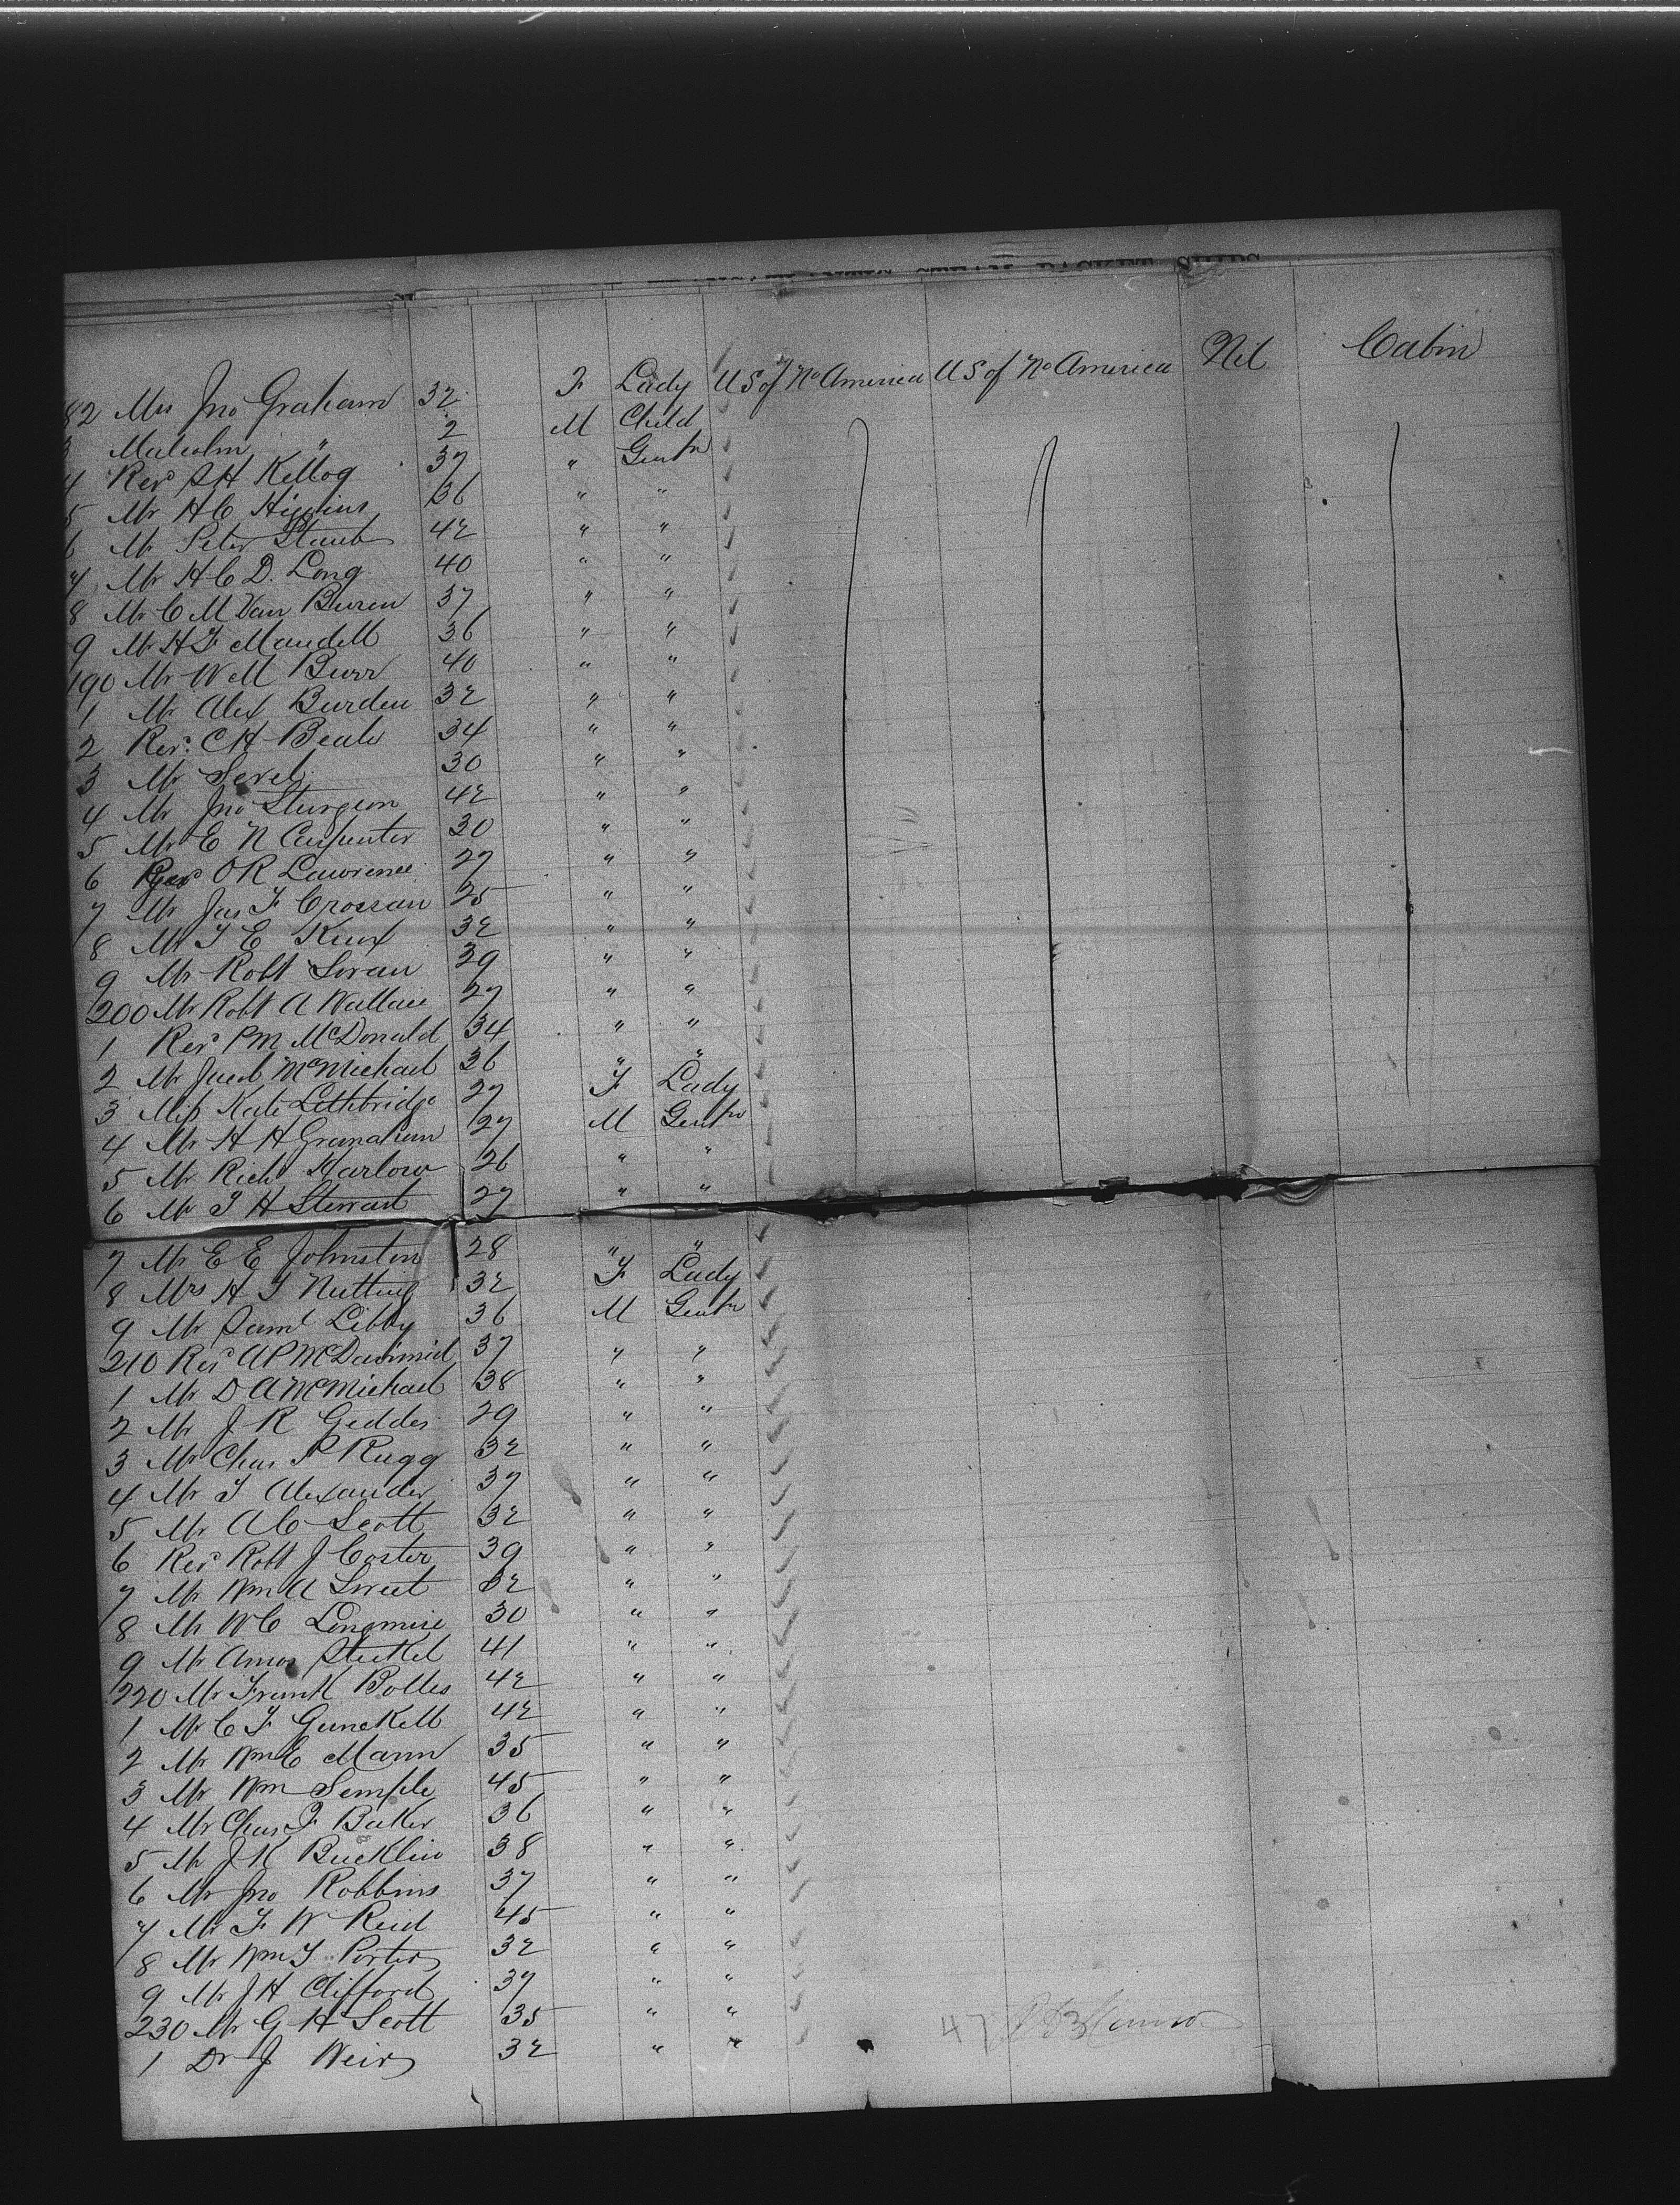 STEAM PACKET SHIPS
Nil Cabin
82 Mrs Jno Graham 32 F Lady U S of No America U S of No America
3 Malcolm " 2 M Child
4 Revd S H Kellog 37 " Gentn
5 Mr H C Higgins 36 " "
6 Mr Peter Staub 42 " "
7 Mr H C D. Long 40 " "
8 Mr C M Van Buren 37 " "
9 Mr H F Mandell 36 " "
190 Mr W M Burr 40 " "
1 Mr Alex Burden 32 " "
2 Revd C H Beale 34 " "
3 Mr 30 " "
4 Mr Jno Sturgeon 42 " "
5 Mr E N Carpenter 30 " "
6 Revd O R Lawrence 27 " "
7 Mr Jas F Crossan 25 " "
8 Mr T E Knox 32 " "
9 Mr Robt 29 " "
200 Mr Robt A Wallace 27 " "
1 Revd P M McDonald 34 " "
2 Mr Jacob McMichael 36 " "
3 Miss Kate Lethbridge 27 F Lady
4 Mr H H Granahan 27 M Gentn
5 Mr Richd Harlow 26 " "
6 Mr T H Stewart 27 " "
7 Mr E E Johnston 28 " "
8 Mrs H T Nutting 32 F Lady
9 Mr Saml Libby 36 M Gentn
210 Revd A P McDiarmid 37 " "
1 Mr D A McMichael 38 " "
2 Mr J R Geddes 29 " "
3 Mr Chas P Rugg 32 " "
4 Mr T Alexander 37 " "
5 Mr A C Scott 32 " "
6 Revd Robt J Coster 39 " "
7 Mr Wm A Sweet 32 " "
8 Mr W C Longmire 30 " "
9 Mr Amos Steckel 41 " "
220 Mr Frank Bolles 42 " "
1 Mr C F Gunckell 42 " "
2 Mr Wm C Mann 35 " "
3 Mr Wm Semple 45 " "
4 Mr Chas F Baker 36 " "
5 Mr J K Bucklin 38 " "
6 Mr Jno Robbins 37 " "
7 Mr F W Reid 45 " "
8 Mr Wm T Porter 32 " "
9 Mr J H Clifford 37 " "
230 Mr G H Scott 35 " " 47
1 Dr J Weir 32 " "